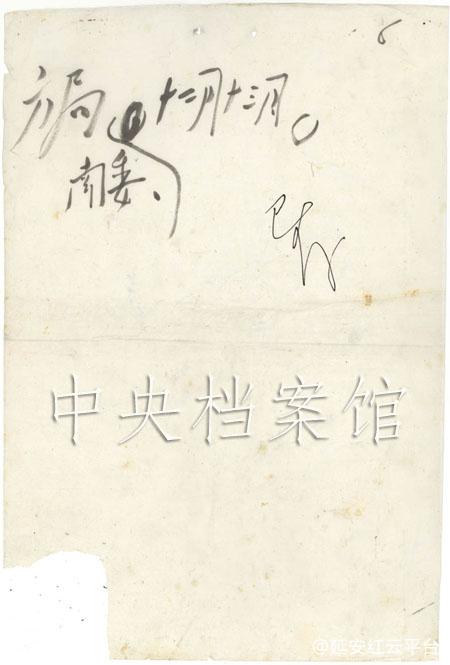 6
方局 十二月十三日。
南委、
中央档案馆
@延安红云平台